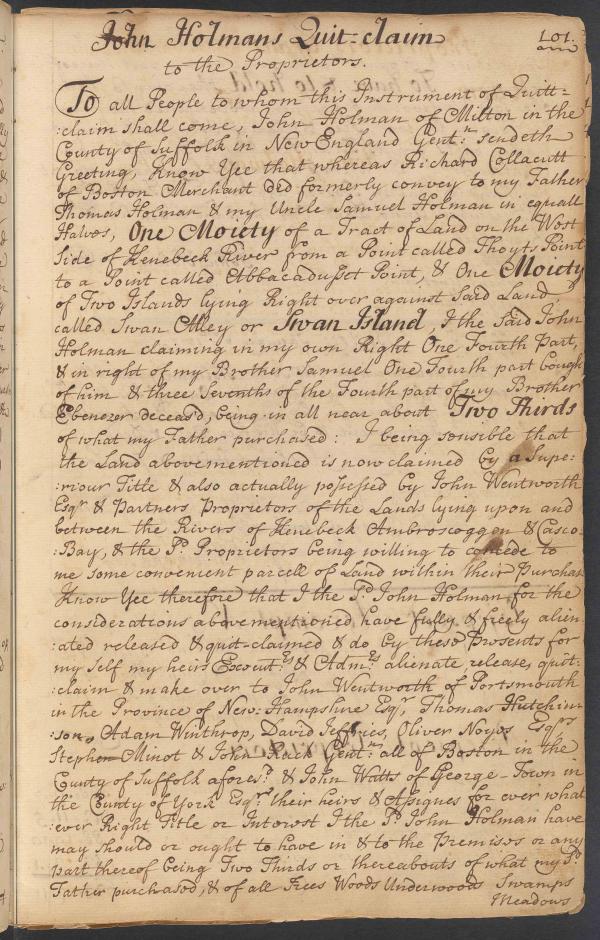 John Holmans Quit-claim
to the Proprietors.
101.
To all People to whom this Instrument of Quitt-
:claim shall come, John Holman of Milton in the
County of Suffolk in New England Gentn. sendeth
Greeting, Know Yee that whereas Richard Collacutt
of Boston Merchant did formerly convey to my Father
Thomas Holman & my Uncle Samuel Holman in equall
Halves, One Moiety of a Tract of Land on the West
Side of Kenebeck River from a Point called Thoyts Point
to a Point called Abbacadusset Point, & One Moiety
of Two Islands lying Right over against said Land
called Swan Alley or Swan Island, I the said John
Holman claiming in my own Right One Fourth Part,
& in right of my Brother Samuel One Fourth part bough
of him & three Sevenths of the Fourth part of my Brother
Ebenezer deceas'd, being in all near about Two Thirds
of what my Father purchased: I being sensible that
the Land abovementioned is now claimed by a Supe:
:riour Title & also actually possessed by John Wentworth
Esqr & Partners Proprietors of the Lands lying upon and
between the Rivers of Kenebeck Ambroscoggen & Casco
:Bay, & the Sd. Proprietors being willing to concede to
me some convenient parcell of Land within their Purchas
Know Yee therefore that I the Sd. John Holman for the
considerations abovementioned have fully & freely alien
:ated released & quit-claimed & do by these Presents for
my self my heirs Executrs & Admrs alienate, release, quit:
:claim & make over to John Wentworth of Portsmouth
in the Province of New:Hampshire Esqr, Thomas Hutchin
:son, Adam Winthrop, David Jeffries, Oliver Noyes Esqrs
Stephen Minot & John Ruck Gentn. all of Boston in the
County of Suffolk aforesd. & John Watts of George-Town in
the County of York Esqr. their heirs & Assignes for ever what
:ever Right Title or Interest I the Sd. John Holman have
may should or ought to have in & to the Premises or any
part thereof being Two Thirds or thereabouts of what my Sd.
Father purchased, & of all Trees Woods Underwoods Swamps
Meadows